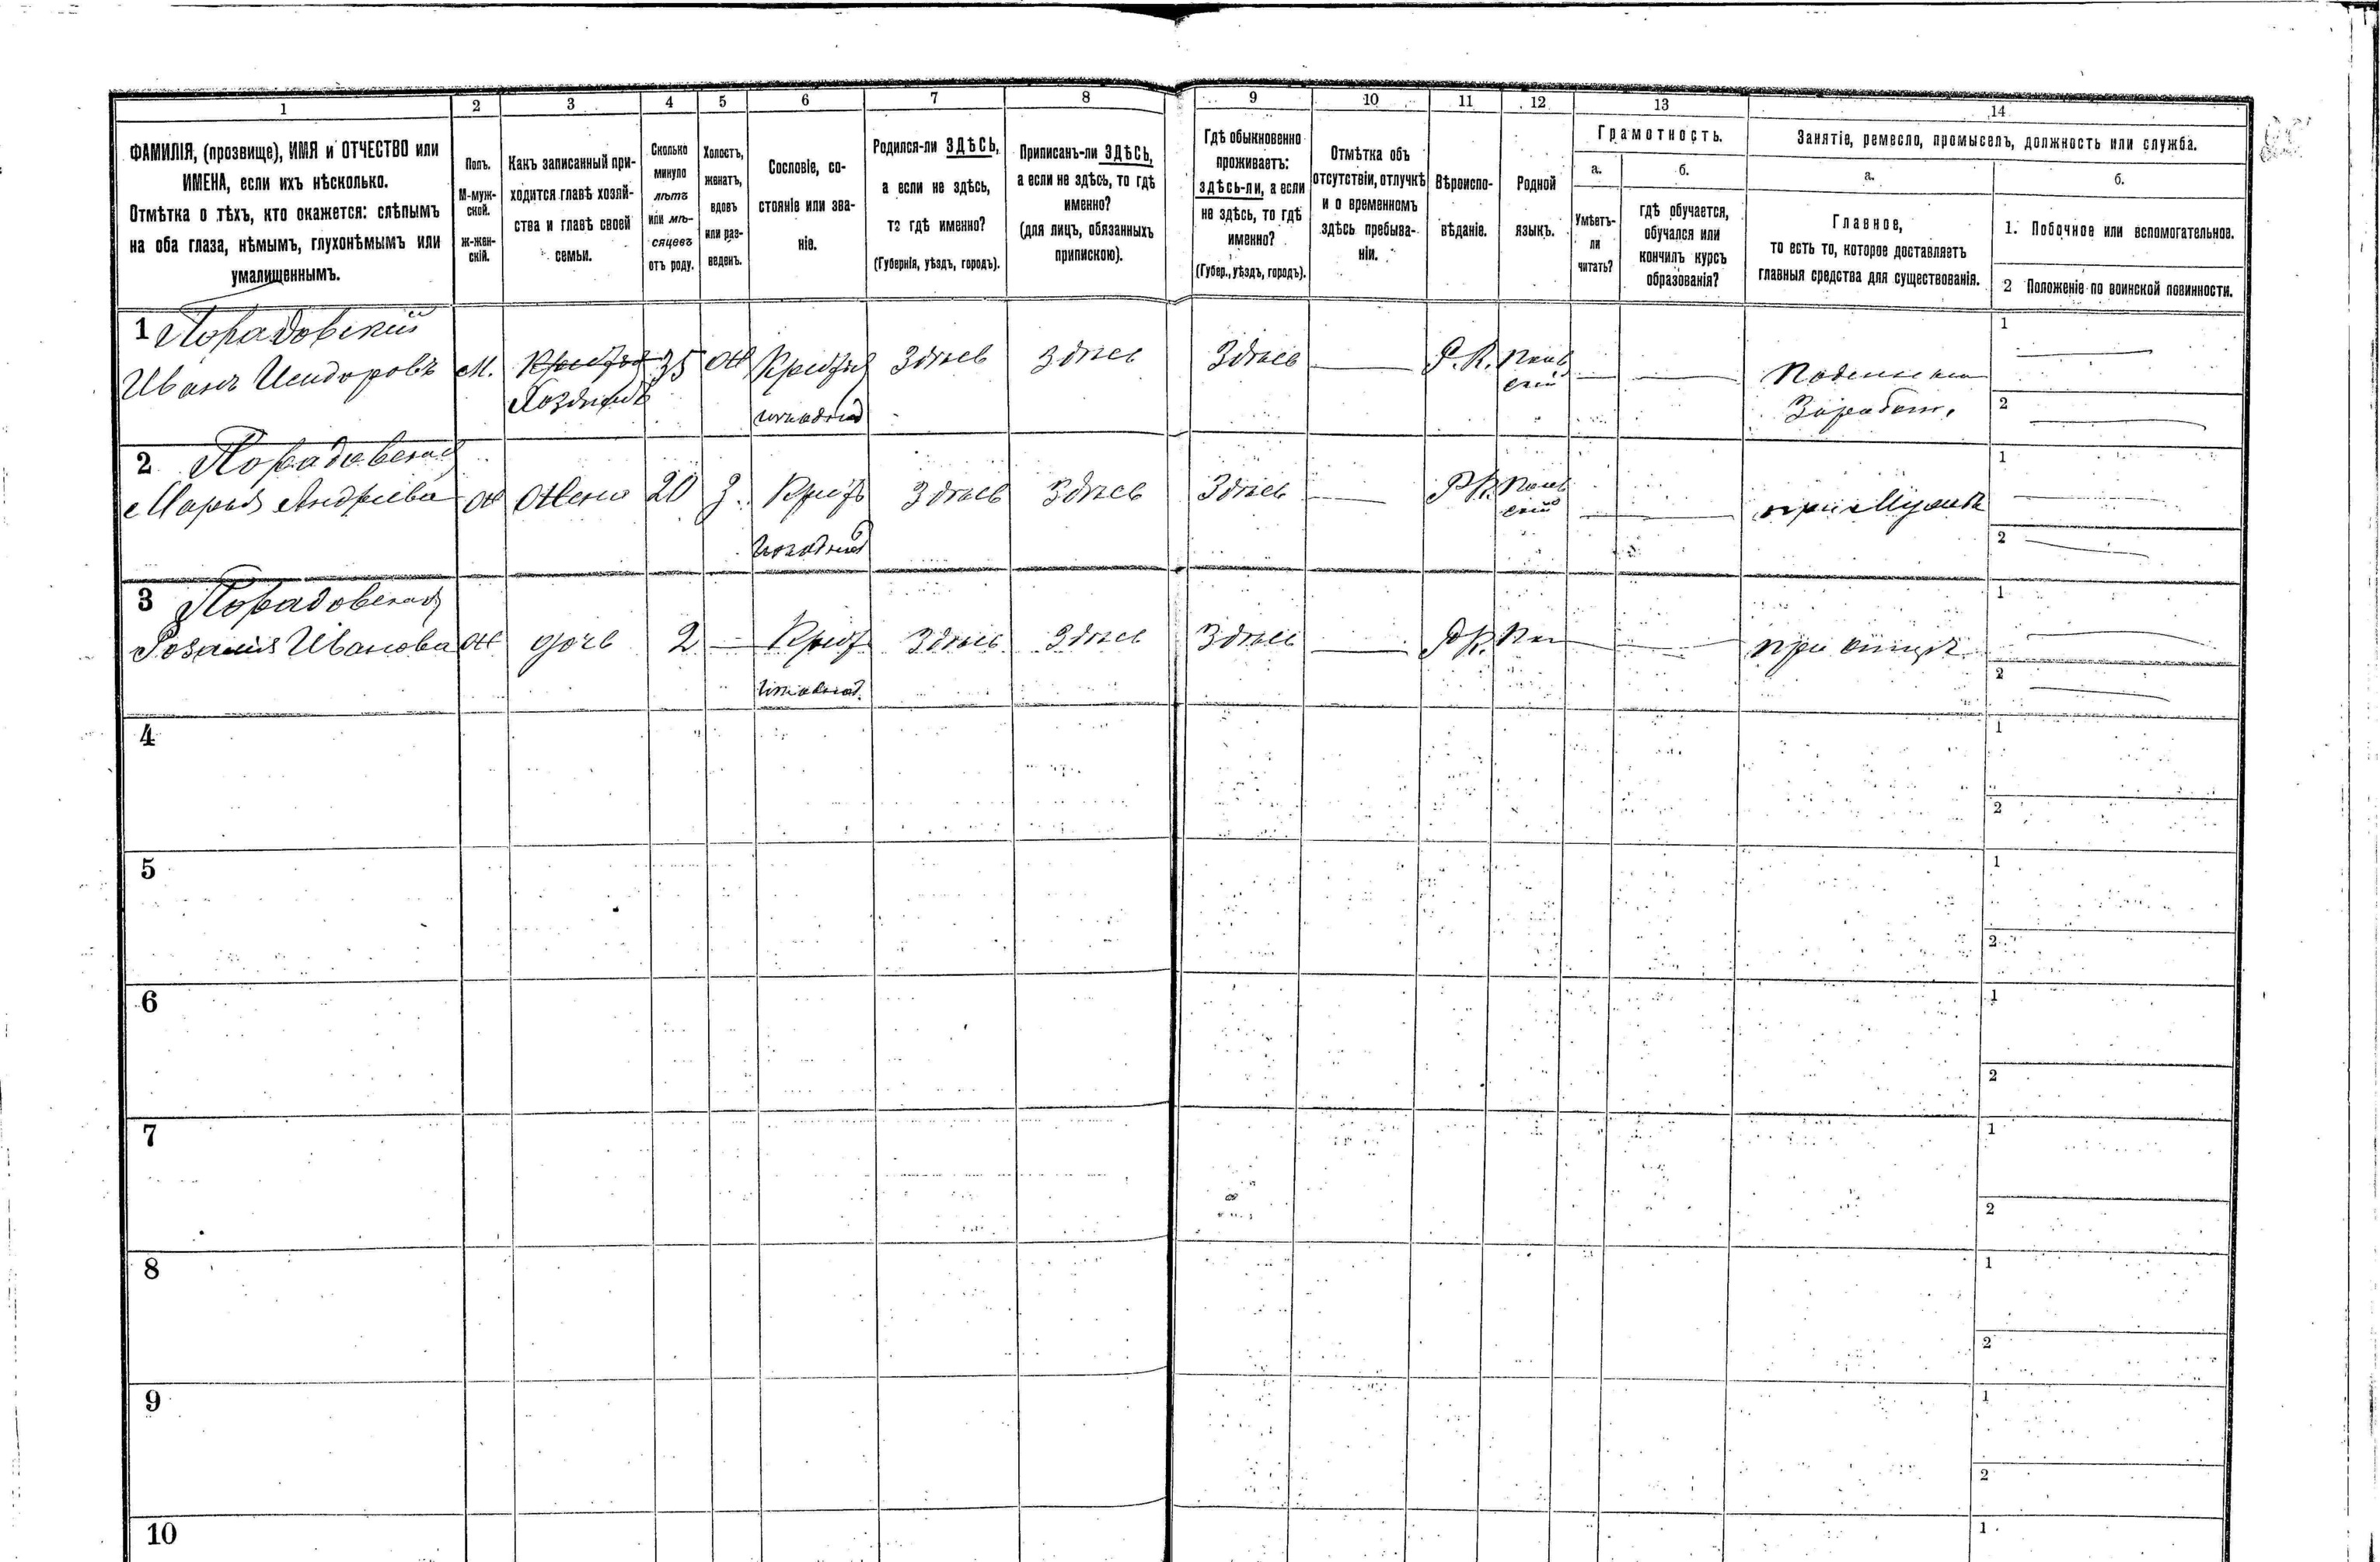 1
2
3
4
5
6
7
8
9
10
11
12
13
14
ФАМИЛІЯ, (прозвище), ИМЯ и ОТЧЕСТВО или
ИМЕНА, если ихъ нѣсколько.
Отмѣтка о тѣхъ, кто окажется: слѣпымъ
на оба глаза, нѣмымъ, глухонѣмымъ или
умалишеннымъ.
Полъ.
М-муж-
ской.
ж-жен-
скій.
Какъ записанный при-
ходится главѣ хозяй-
ства и главѣ своей
семьи.
Сколько
минуло
лѣтъ
или мѣ-
сяцевъ
отъ роду.
Холостъ,
женатъ,
вдовъ
или раз-
веденъ.
Сословіе, со-
стояніе или зва-
ніе.
Родился-ли ЗДѢСЬ,
а если не здѣсь,
то гдѣ именно?
(Губернія, уѣздъ, городъ).
Приписанъ-ли ЗДѢСЬ,
а если не здѣсь, то гдѣ
именно?
(для лицъ, обязанныхъ
припискою).
Гдѣ обыкновенно
проживаетъ:
здѣсь-ли, а если
не здѣсь, то гдѣ
именно?
(Губер., уѣздъ, городъ).
Отмѣтка объ
отсутствіи, отлучкѣ
и о временномъ
здѣсь пребыва-
ніи.
Вѣроиспо-
вѣданіе.
Родной
языкъ.
Грамотность.
а.
Умѣетъ-
ли
читать?
б.
гдѣ обучается,
обучался или
кончилъ курсъ
образованія?
Занятіе, ремесло, промыселъ, должность или служба.
а.
Главное,
то есть то, которое доставляетъ
главныя средства для существованія.
б.
1. Побочное или вспомогательное.
2 Положеніе по воинской повинности.
1 Порадовскій
Иванъ Исидоровъ
М.
Хозяинъ
35
Ж
Здѣсь
Здѣсь
Здѣсь
Р. К.
Поль
скій
Заработ.
1
2
2 Порадовская
Марья Андреева
Ж
Жена
20
З.
Здѣсь
Здѣсь
Здѣсь
Р К.
Поль
скій
при Мужѣ
1
2
3 Порадовская
Розалія Иванова
Ж
дочь
2
Здѣсь
Здѣсь
Здѣсь
Р К.
при отцѣ
1
2
4
1
2
5
1
2
6
1
2
7
1
2
8
1
2
9
1
2
10
1